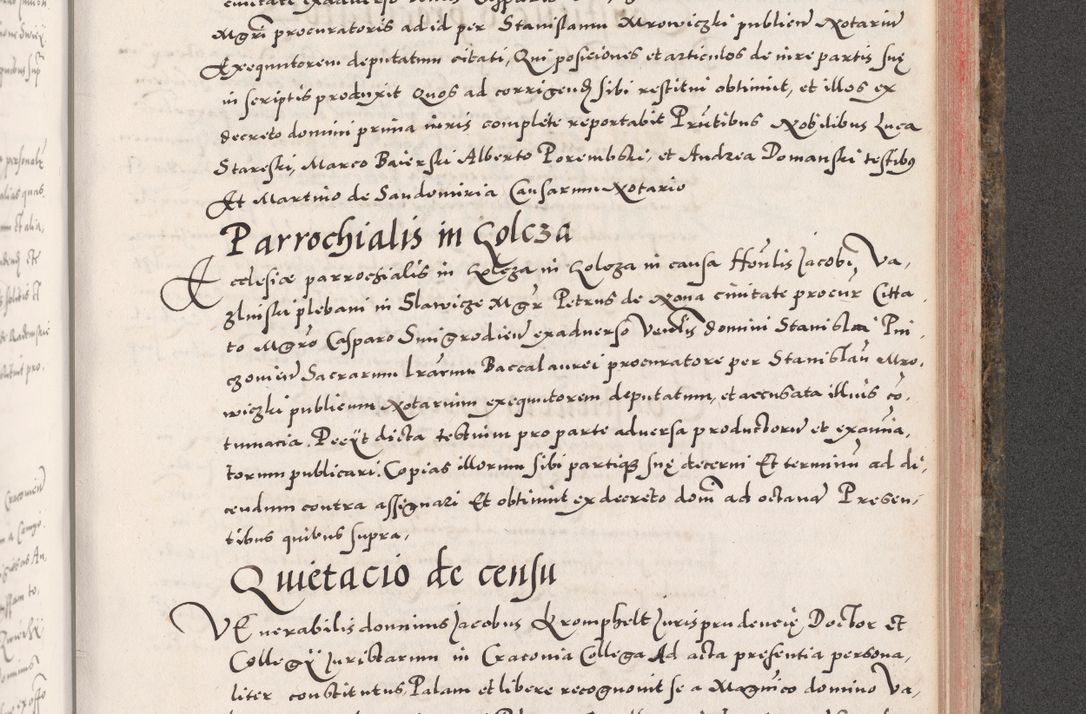 Mgri procuratoris ad id per Stanislaum Mrowiczki publicum Notarium
Exequutorem deputatum citati, Qui posiciones et articulos de iure partis suę
in scriptis produxit Quos ad corrigend sibi restitui obtinuit, et illos ex
decreto domini prima iuris complete reportabit Pntibus Nobilibus Luca
Stareski, Marco Baierski Alberto Porembski, et Andrea Domanski testibus
Et Martino de Sandomiria Causarum Notario
Parrochialis in Golcza
Ecclesiæ parrochialis in Golcza in Golcza in causa Honlis Jacobi Va,
glinski plebani in Slawicze Mgr Petrus de Nona ciuitate procur Citta
to Mgro Casparo Smigrodien exaduerso Venlis domini Stanislai Pni
czonien Sacrarum lrarum Baccalaurei procuratore per Stanislau Mro,
wiczki publicum Notarium exequutorem deputatum, et accusata illius co,
tumacia. Peeÿt dicta testium pro parte aduersa productoru et exania,
torum publicari. Copias illorum sibi partique suę decerni Et terminu ad di,
cendum contra assignari Et obtinuit ex decreto domi ad octaua Presen,
tibus quibus supra,
Quietacio de censu
VEnerabilis dominus Jacobus Kromphelt Juris prudencię Doctor et
Collegÿ Juristarum in Craconia Collega Ad acta presentia persona,
liter constitutus, Palam et libere recognouit se a Magnico domino Va,